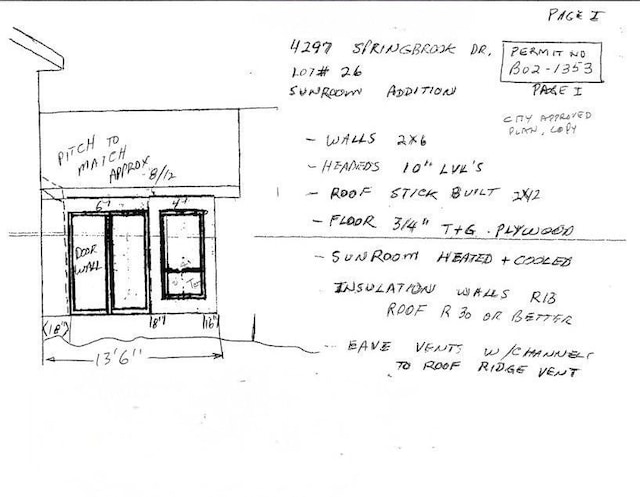 PAGE I
4297 SPRINGBROOK DR.
LOT# 26
SUNROOM ADDITION
PERMIT NO
B02-1353
PAGE I
CITY APPROVED
PLAN, COPY
- WALLS 2x6
- HEADEDS 10" LVL'S
- ROOF STICK BUILT 2x12
- FLOOR 3/4" T+G. PLYWOOD
- SUNROOM HEATED + COOLED
INSULATION WALLS R13
ROOF R 30 OR BETTER
- EAVE VENTS W/CHANNELS
TO ROOF RIDGE VENT
PITCH TO
MATCH
APPROX - 8/12
6'
4'
DOOR
WALL
18"
18"
16"
13'6"